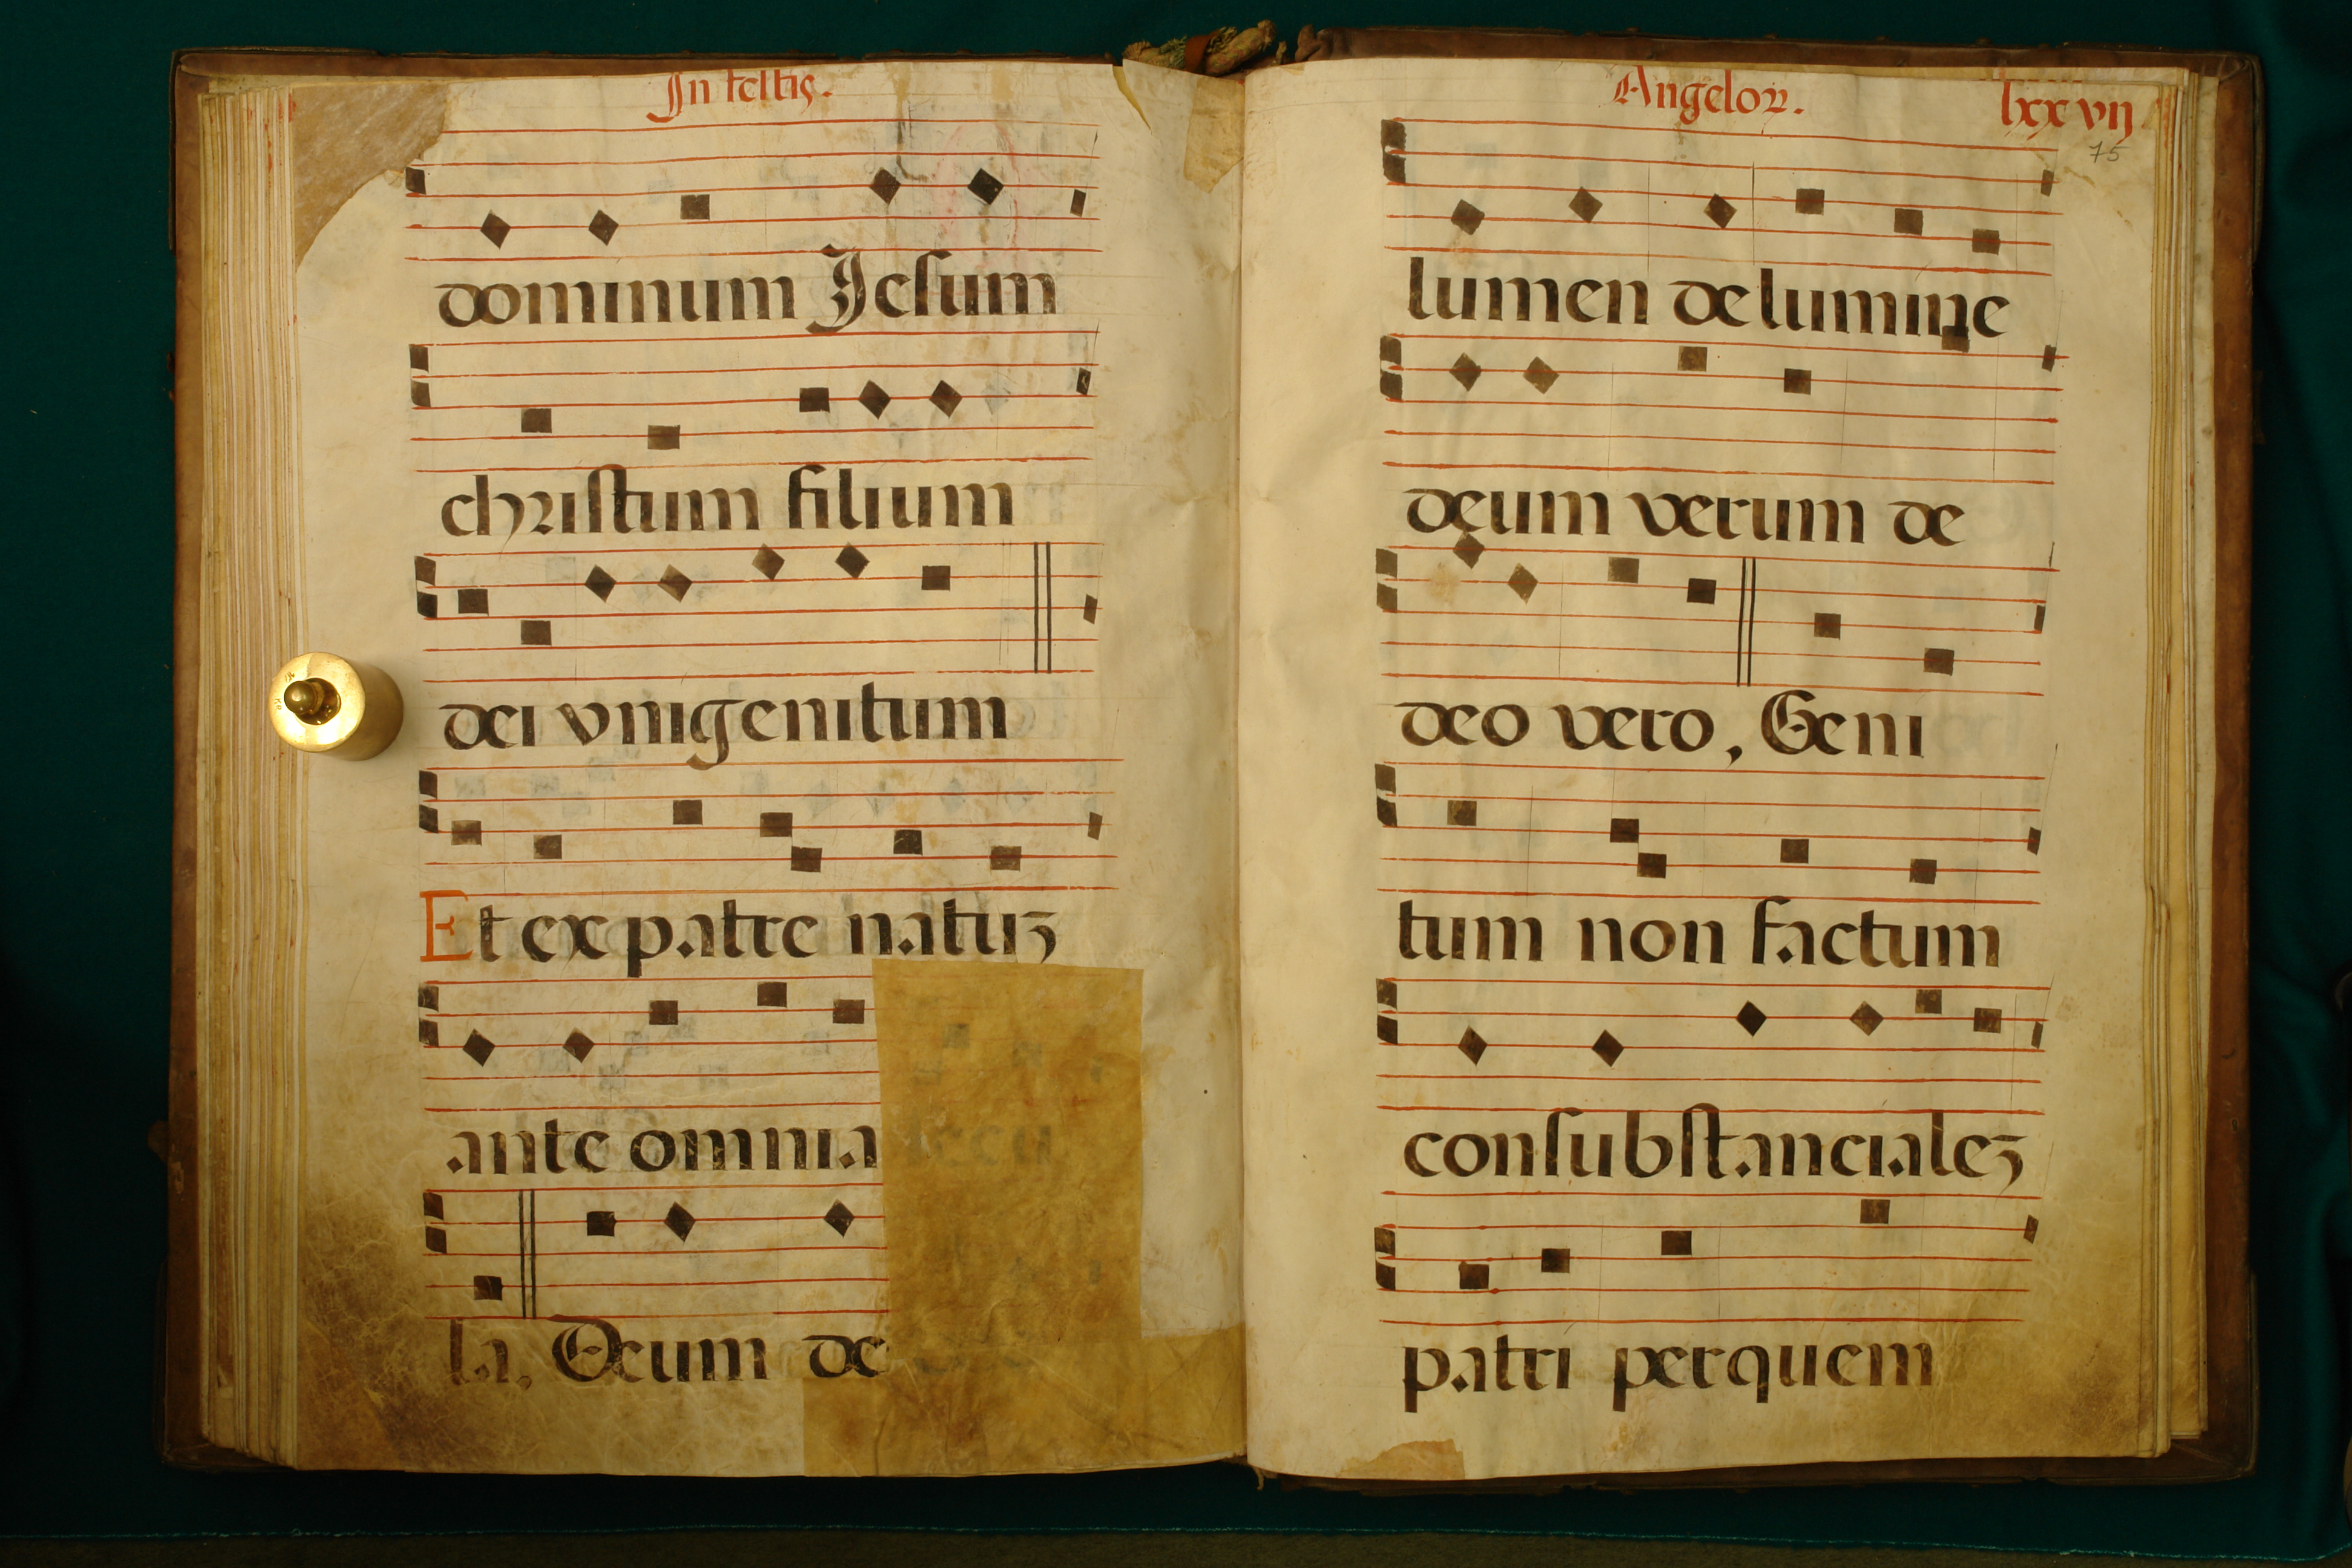 In festis.
dominum Jesum
christum filium
dei vnigenitum
Et ex patre natuz
ante omnia
la. Deum de
Angeloꝝ. lxxvij
75
lumen de lumine
deum verum de
deo vero, Geni
tum non factum
consubstancialez
patri per quem